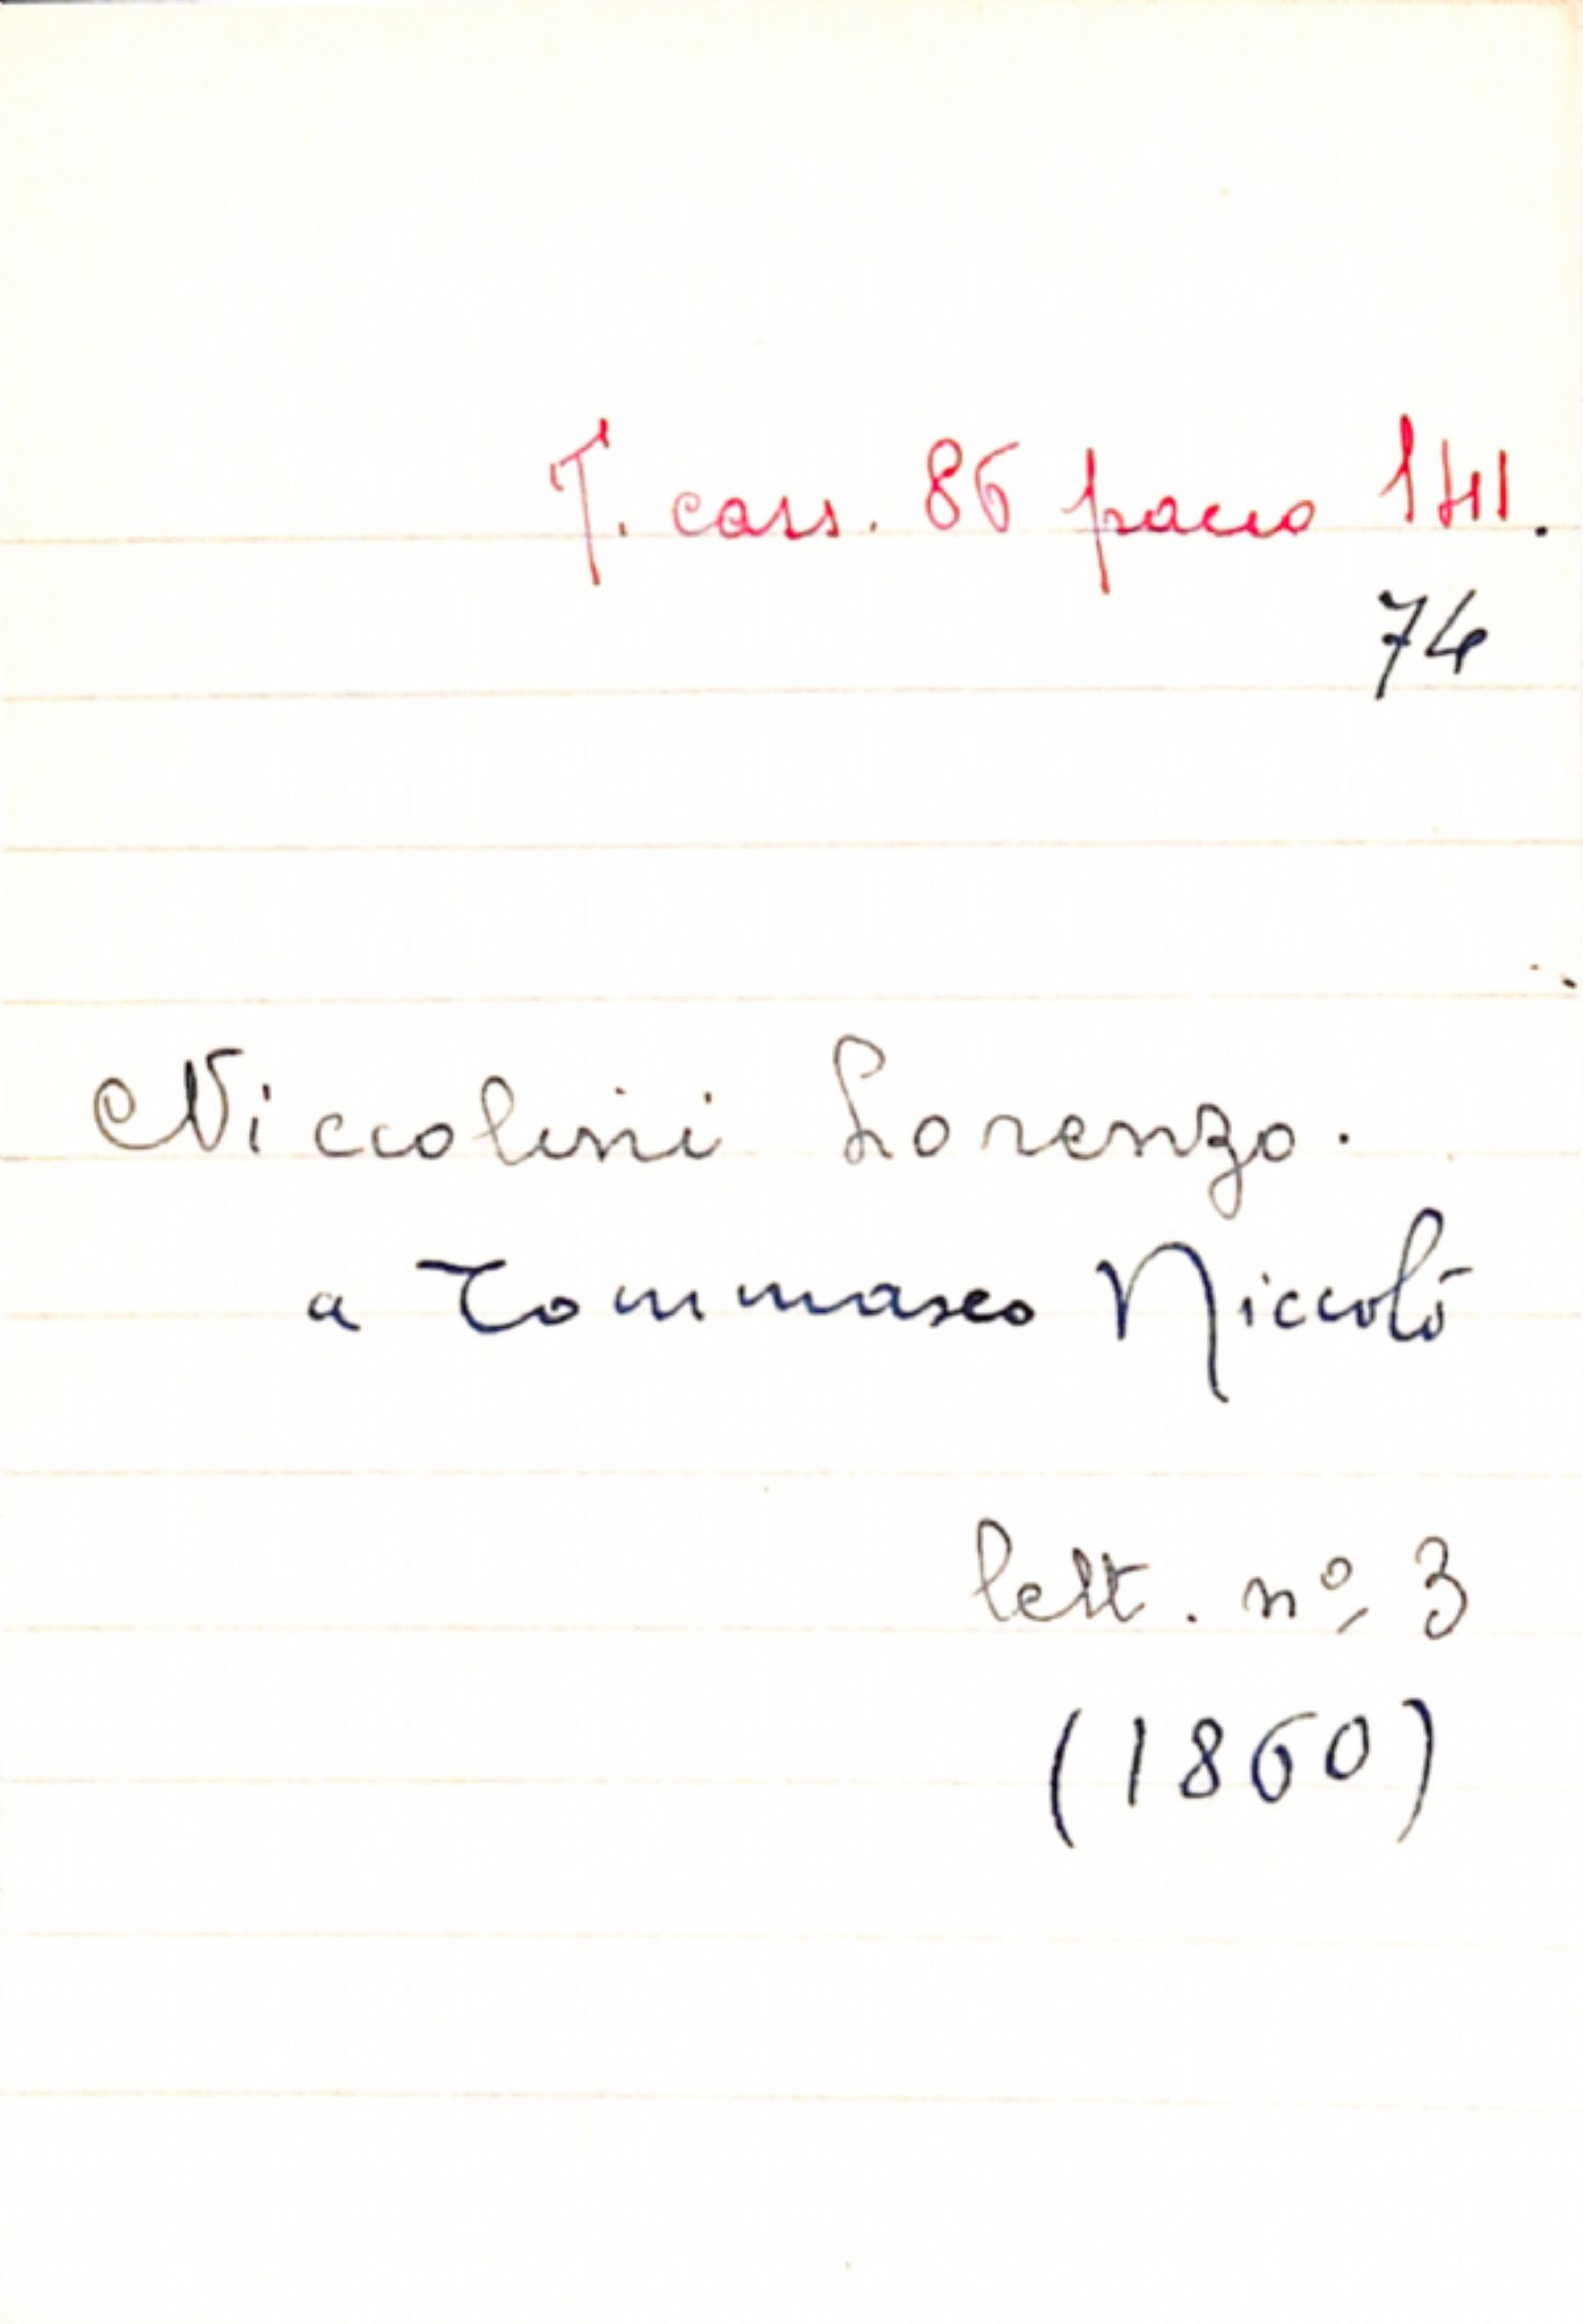 T. cass. 86 pacco 141.
74
Niccolini Lorenzo.
a Tommaseo Niccolò
lett. nº 3
(1860)